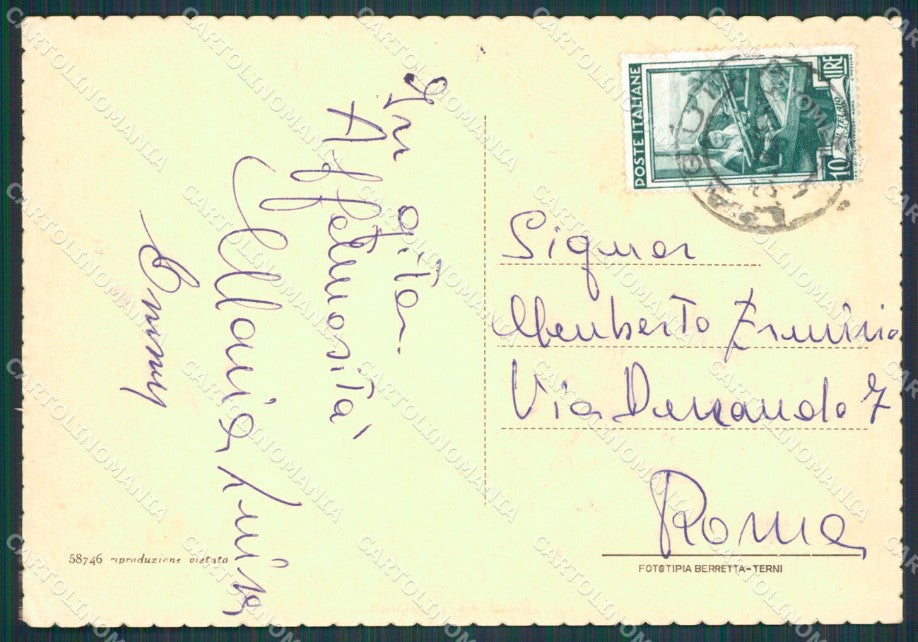 In gita.
Affettuosità
Maria Luisa
Emmy
58746 riproduzione vietata
POSTE ITALIANE
10 LIRE
Signor
Umberto Erminio
Via Durando 7
Roma
FOTOTIPIA BERRETTA - TERNI
CARTOLINOMANIA